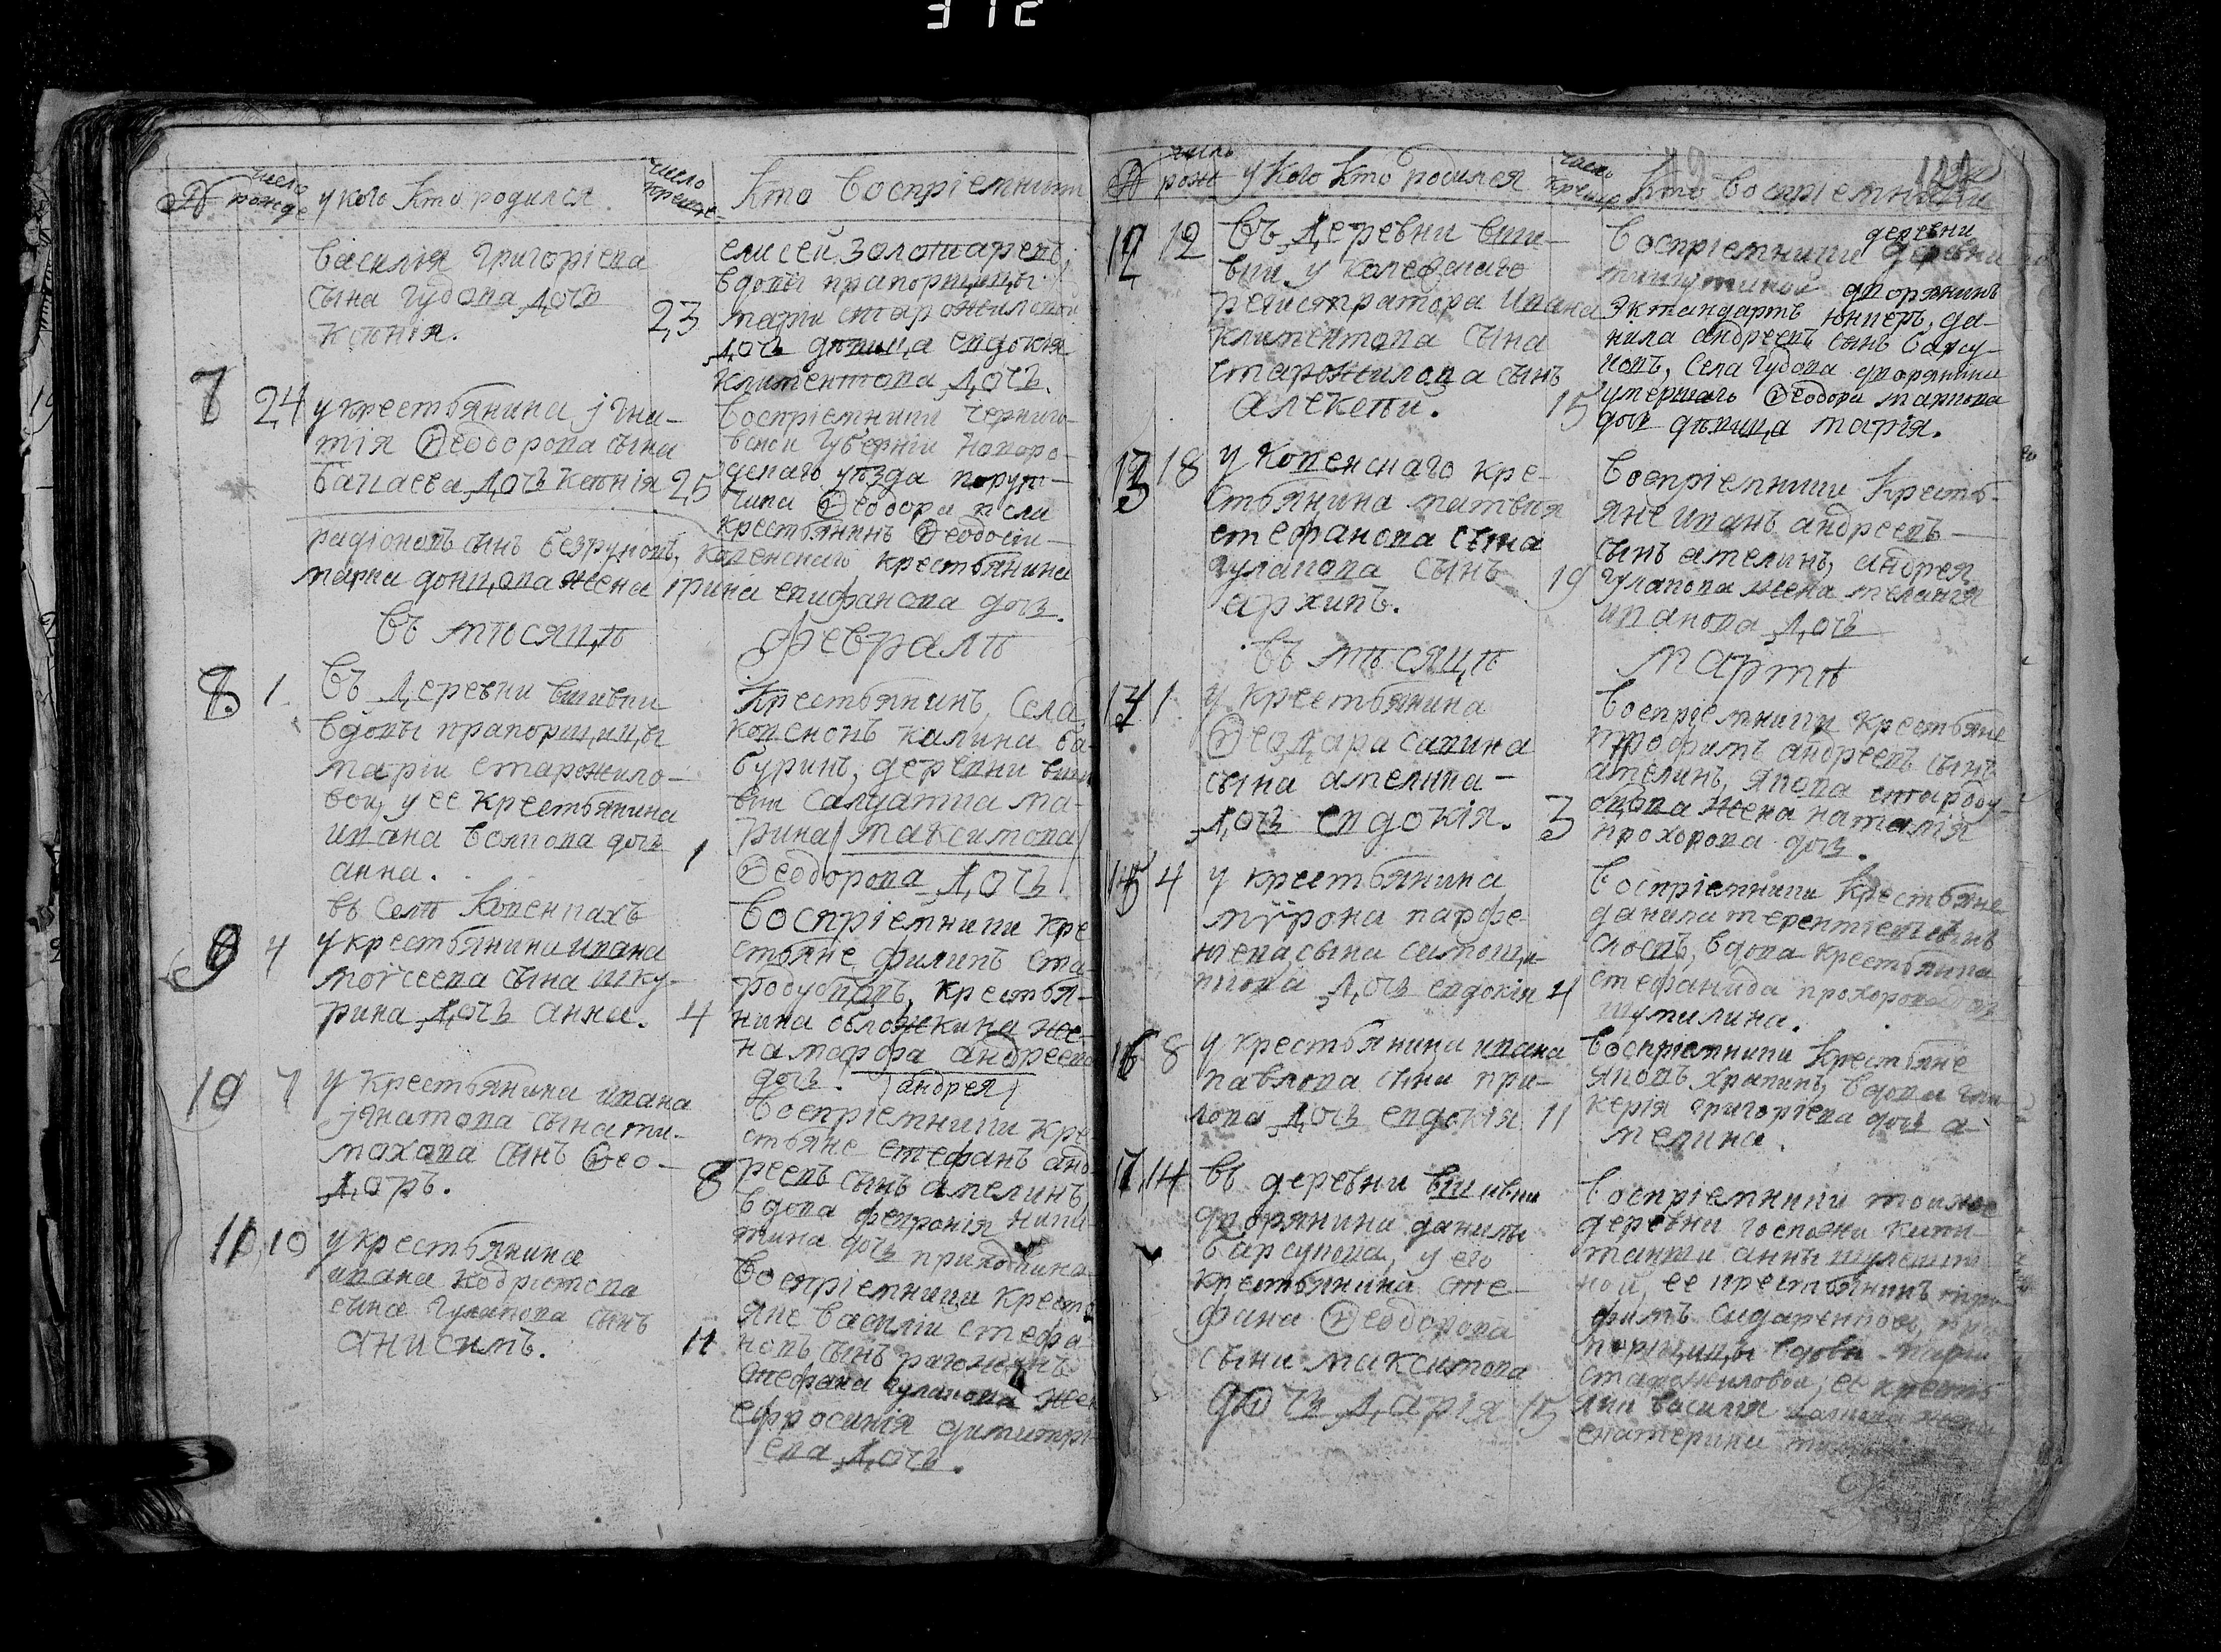 312
№ число рожде у кого кто родился число креще- кто воспріемники
василія григоріева
сына гудова дочь
ксенія.
23
елисей золотаревъ,
вдовы прапорщицы
маріи старожиловой
дочь девица евдокія
климентова дочь.
7 24 у крестьянина игна-
тія Ѳеодорова сына
бакаева дочь ксенія 25
воспріемники черниго-
вской губерніи новоро-
дскаго уѣзда
Ѳеодора
крестьянинъ Ѳеодоси-
радіоновъ сынъ безруковъ, копенскаго крестьянина
марка донцова жена ирина епифанова дочь.
въ мѣсяцѣ февралѣ
8 1 въ деревни вшивки
вдовы прапорщицы
маріи старожило-
вой, у ее крестьянина
ивана волкова дочь
анна. 1
крестьянинъ села
копенокъ калина ба-
буринъ, деревни вши
вки салдатка ма-
рина максимова
Ѳеодорова дочь
въ селѣ копенкахъ
9 4 у крестьянина ивана
моѵсеева сына шку-
рина дочь анна. 4
воспріемники кре
стьяне филипъ ста-
родубцовъ, крестья-
нина обложкина же-
на марфа андреева
дочь. андрея
10 7 у крестьянина ивана
игнатова сына ма-
лахова сынъ Ѳео-
доръ. 8
воспріемники кре-
стьяне стефанъ анд-
реевъ сынъ амелинъ
вдова февронія ники-
тина дочь
11 10 у крестьянина
ивана кодратова
сына гулакова сынъ
анисимъ. 11
воспріемники кресть
яне василій стефа-
новъ сынъ
стефана гулакова жен
ефросинія димитрі-
ева дочь.
№ число рож у кого кто родился число креще кто воспріемники
12 12 въ деревни вши-
вки у колежскаго
регистратора ивана
климентова сына
старожилова сынъ
алексей. 15
деревни
воспріемники деревни
дворянинъ
экстандартъ юнкеръ, да-
нила андреевъ сынъ барсу-
ковъ, села гудова дворянина
умершаго Ѳеодора маркова
дочь девица марія.
13 18 у копенскаго кре-
стьянина матвея
стефанова сына
гулакова сынъ 19
архипъ.
воспріемники кресть-
яне иванъ андреевъ
сынъ амелинъ, андрея
гулакова жена меланія
иванова дочь
въ мѣсяцѣ мартѣ
14 1 у крестьянина
Ѳеодора савина
сына амелина
дочь евдокія. 3
воспріемники крестьяне
трофимъ андреевъ сынъ
амелинъ, якова староду-
бцова жена наталія
прохорова дочь.
15 4 у крестьянина
мѵрона парфе
ньева сына
дочь евдокія 4
воспріемники крестьяне
данила терентіевъ сынъ
вдова крестьянка
стефанида прохорова дочь
шумилина.
16 8 у крестьянина ивана
павлова сына при-
лопа дочь евдокія 11
воспріемники крестьяне
яковъ храпинъ, вдова гли-
керія григоріева дочь а-
мелина.
17 14 въ деревни вшивки
дворянина данилы
барсукова, у его
крестьянина сте-
фана Ѳеодорова
сына максимова
дочь дарія 15
воспріемники тоижъ
деревни госпожи капи-
танши анны
ной, ее крестьянинъ тро-
фимъ
порщицы вдовы маріи
старожиловой, ее кресть
яни василія жена
екатерина